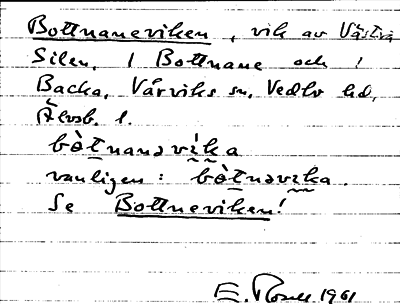 Bottnaneviken, vik av Västra
Silen, i Bottnane och i
Backa, Vårviks sn, Vedbo hd,
Älvsb. l.
bòtnanəvika
vanligen: bòtnəvika.
Se Bottneviken!
E. 1961